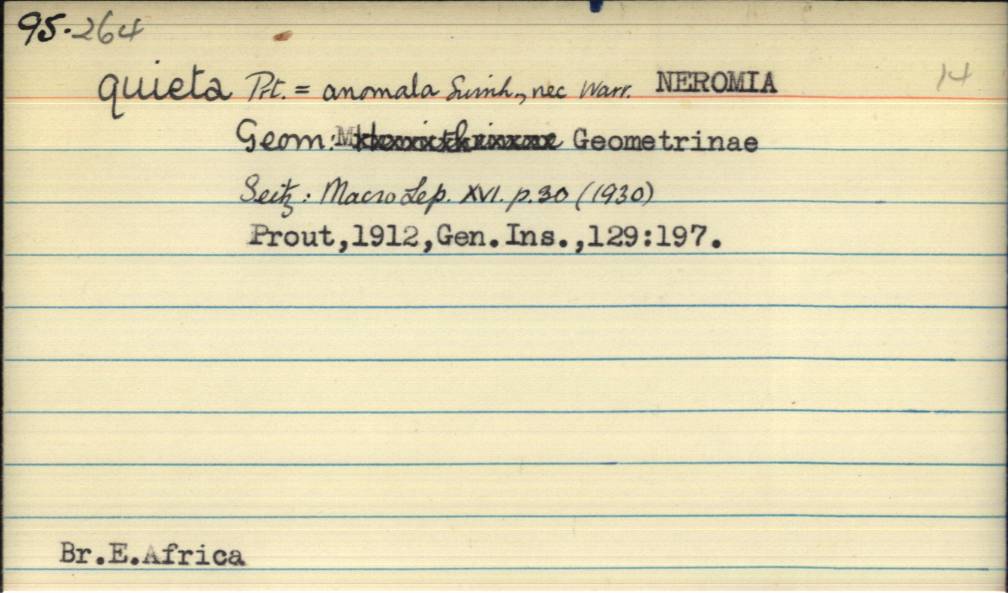 95.264
quieta Prt. = anomala Swinh., nec Warr. NEROMIA 14
Geom: Geometrinae
Seitz: Macro Lep. XVI. p.30 (1930)
Prout,1912,Gen.Ins.,129:197.
Br.E.Africa